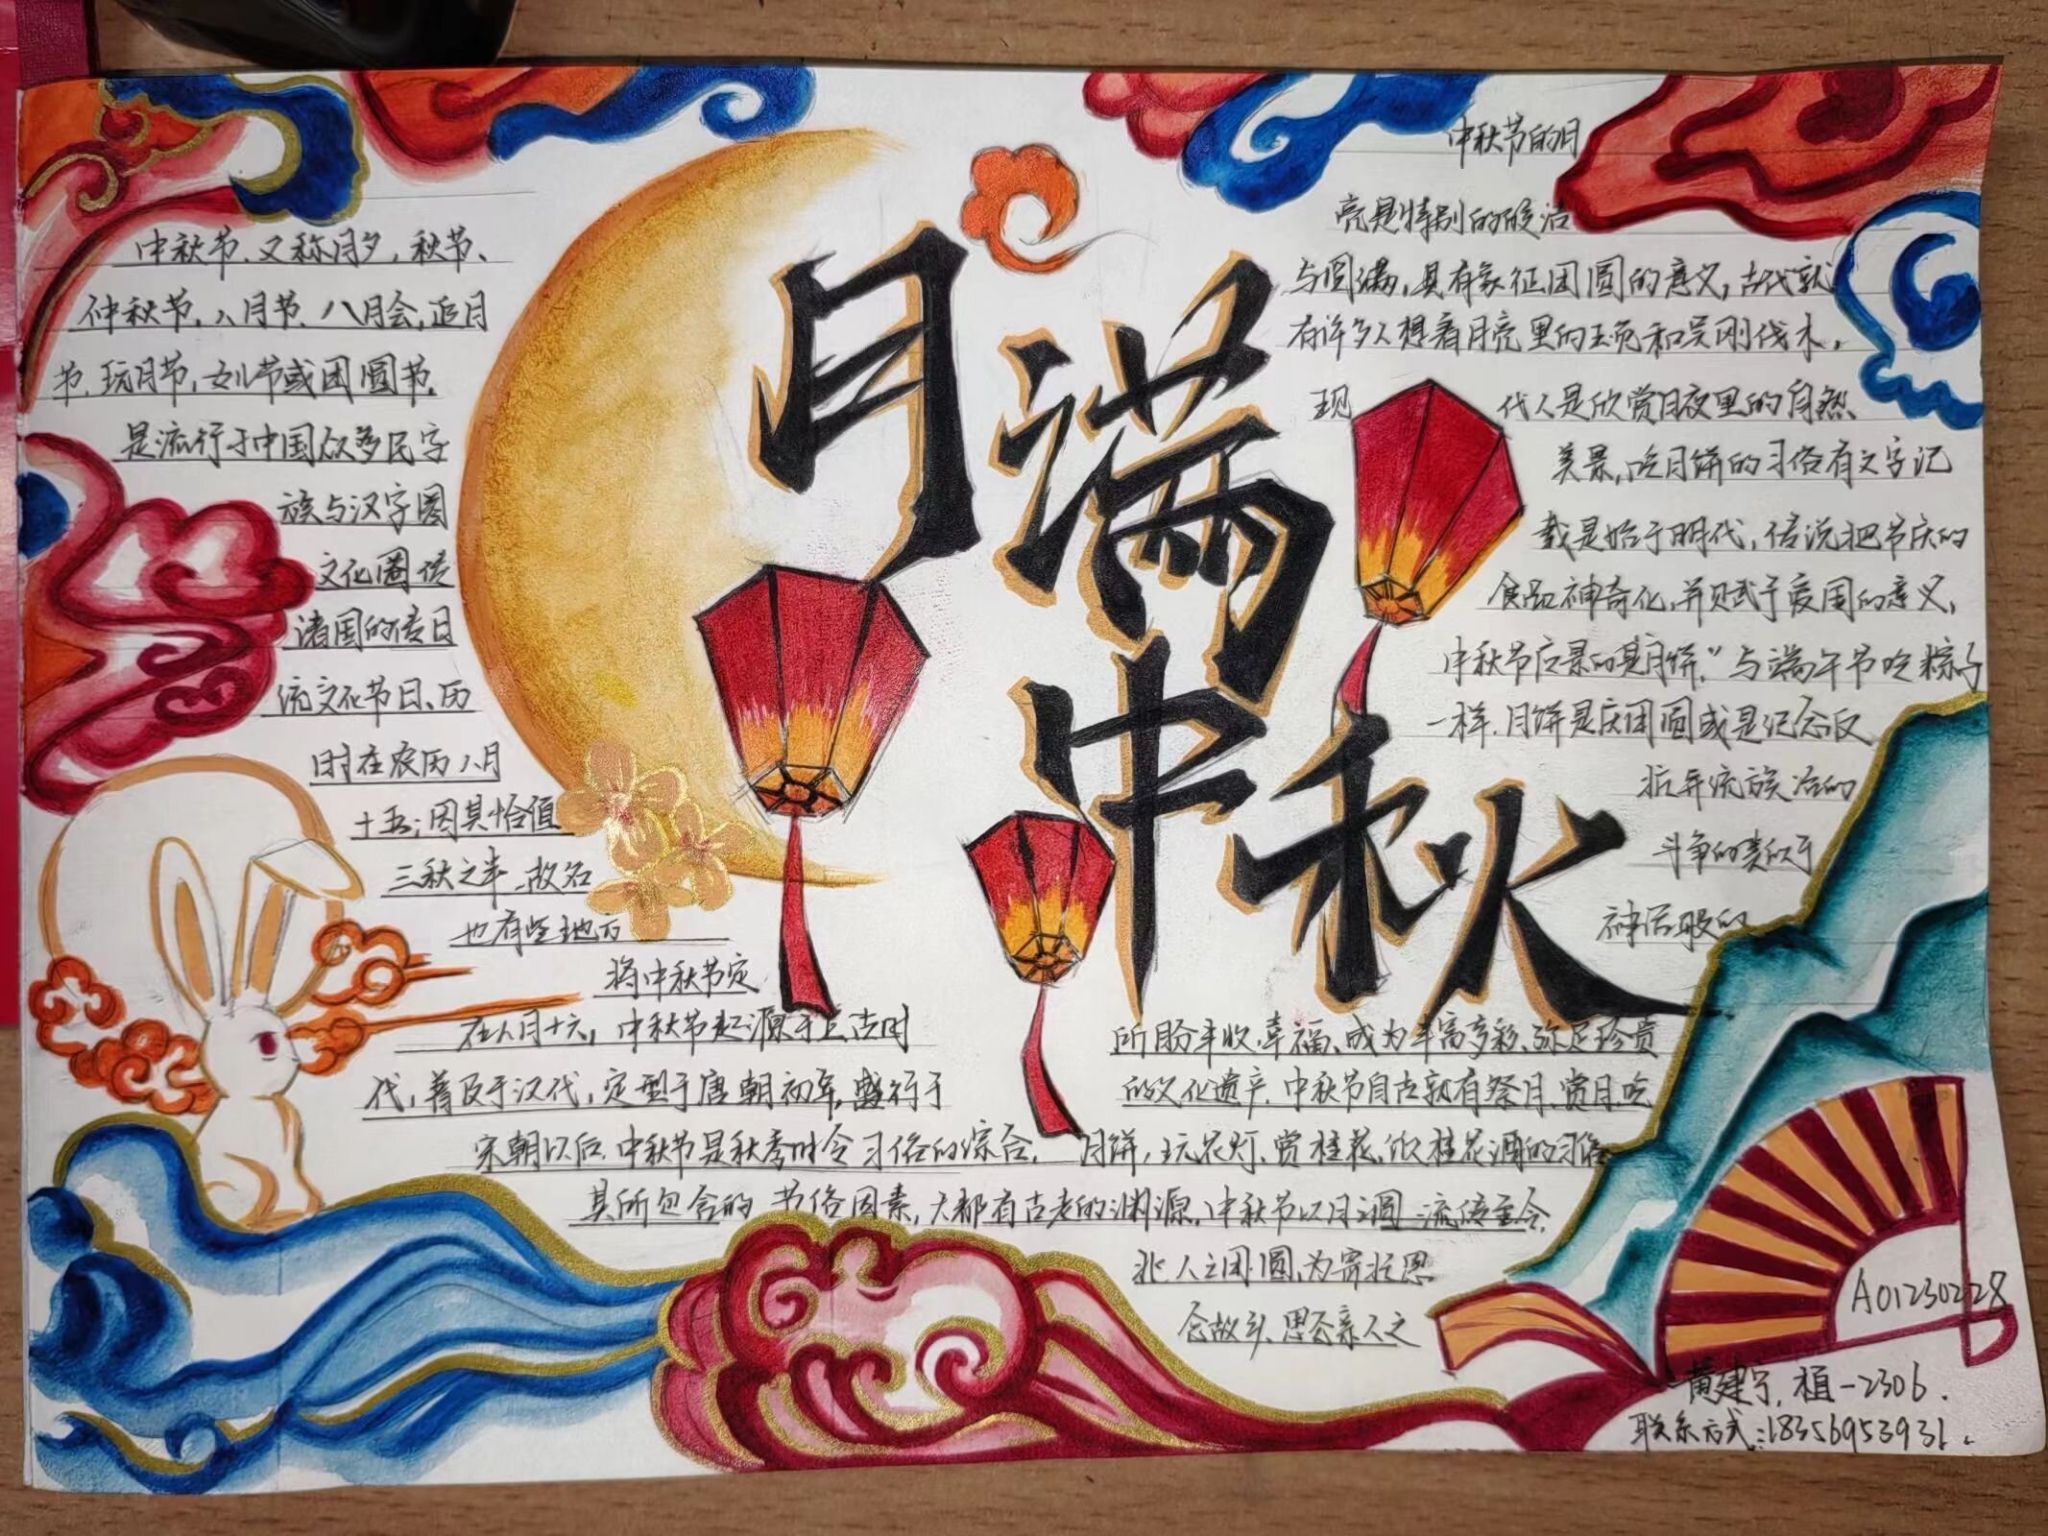 月满
中秋
中秋节,又称月夕,秋节、
仲秋节,八月节,八月会,追月
节,玩月节,女儿节或团圆节,
是流行于中国众多民字
族与汉字圈
文化圈
诸国的传日
统文化节日、历
时在农历八月
十五;因其恰值
三秋之半,故名
也有些地方
将中秋节定
在八月十六,中秋节起源于上古时
代,普及于汉代,定型于唐朝初年,盛行于
宋朝以后,中秋节是秋季时令习俗的综合,
其所包含的节俗因素,大都有古老的渊源,中秋节以月之圆
兆人之团圆,为寄托思
念故乡,思念亲人之
所盼丰收,幸福,成为丰富多彩、弥足珍贵
的文化遗产,中秋节自古就有祭月,赏月,吃
月饼,玩花灯,赏桂花,饮桂花酒的习俗
流传至今,
中秋节的月
亮是特别的
与圆满,具有象征团圆的意义,古代就
有许多人想着月亮里的玉兔和吴刚伐木,
现代人是欣赏月夜里的自然
美景,吃月饼的习俗有文字记
载是始于明代,传说把节庆的
食品神奇化,并赋予爱国的意义,
中秋节 月饼,"与端午节吃粽子
一样,月饼是庆团圆或是记念反
抗异 族 的
斗争的类似于
神
A01230228
黄建宁,植-2306.
联系方式:18356953931.